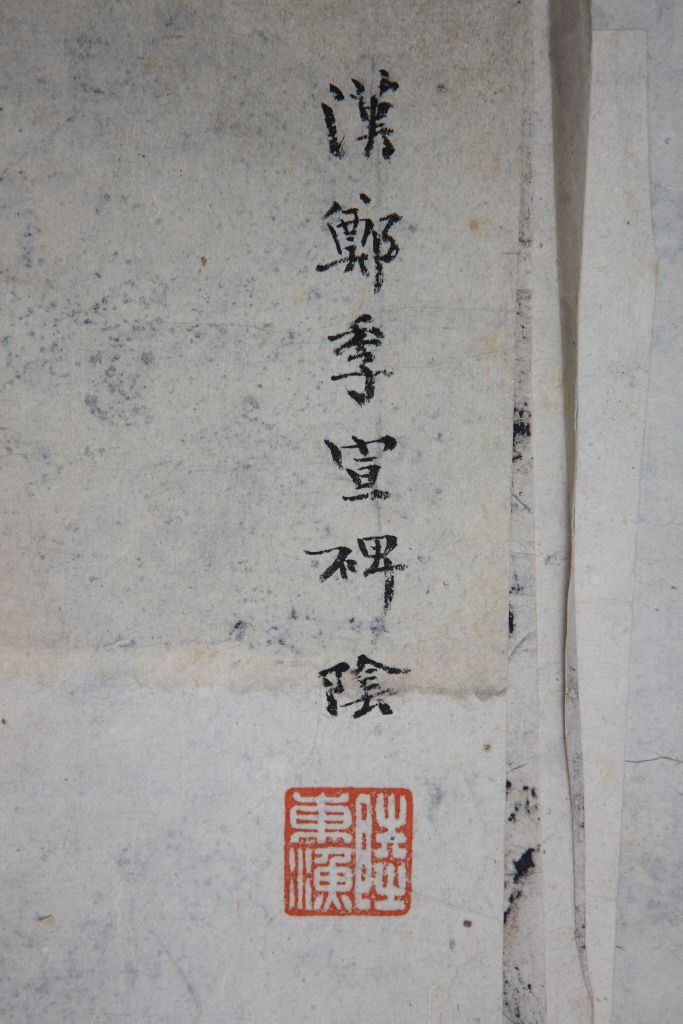 漢鄭季宣碑陰
陸
東漁